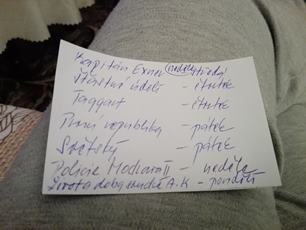 Kapitán Exner (neděle) středy
údolí - čtvrtek
Taggart - čtvrtek
První republika - pátek
Světský - pátek
Policie Modrava II - neděle
Života doby A.K - pondělí